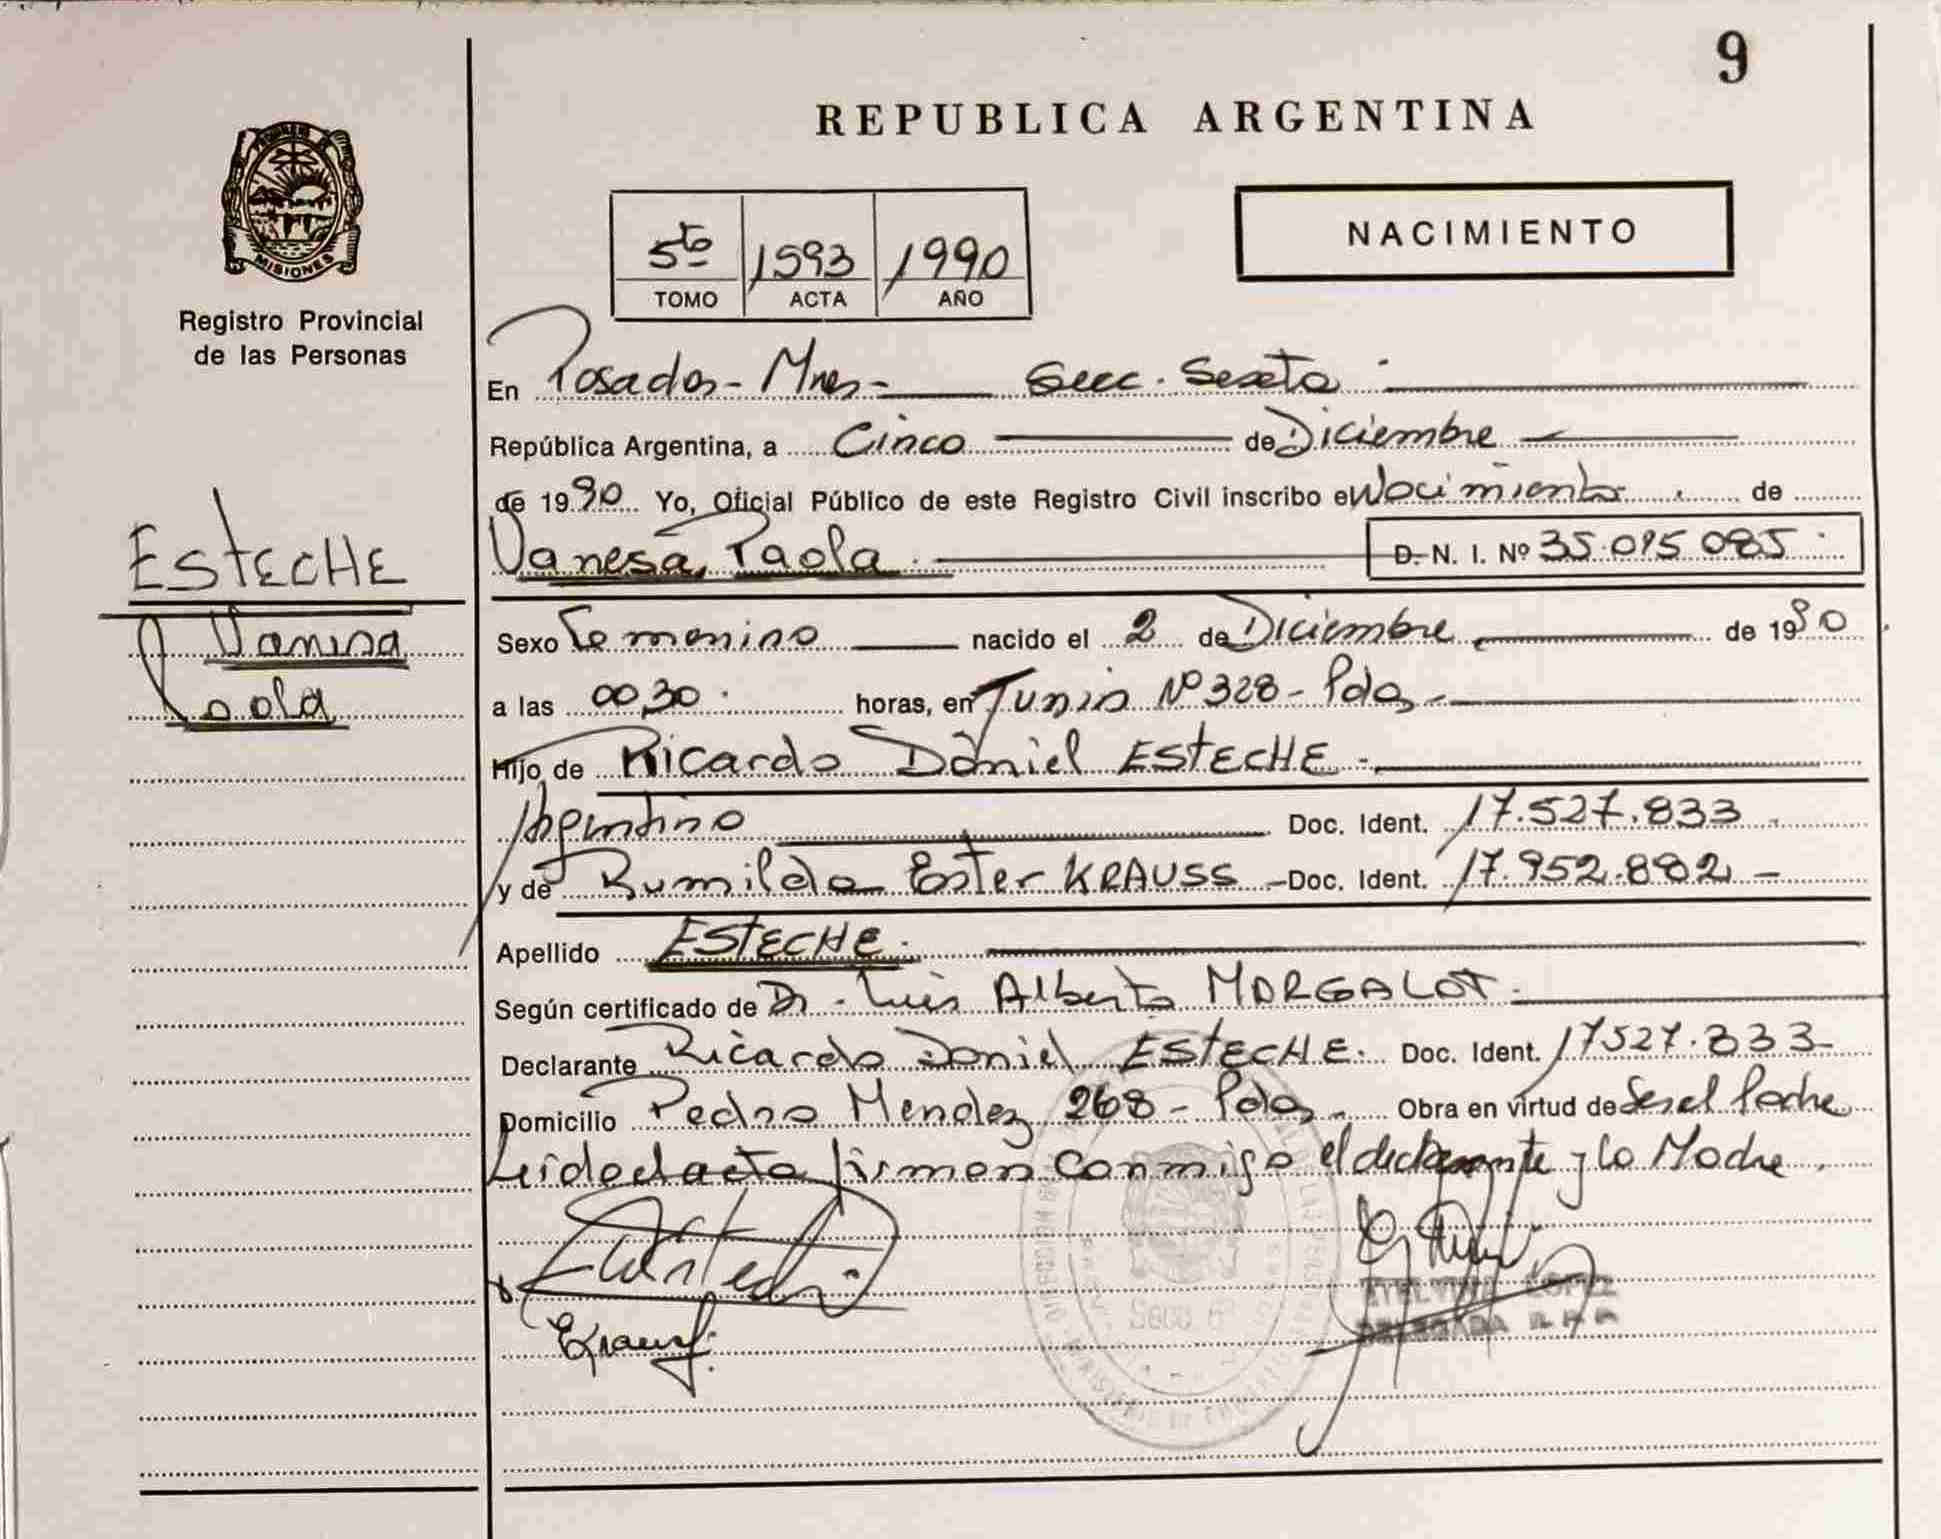 9
REPUBLICA ARGENTINA
MISIONES
Registro Provincial
de las Personas
5to 1593 1990
TOMO ACTA AÑO
NACIMIENTO
En Posadas - Mnes - Secc. Sexta
República Argentina, a Cinco de Diciembre
de 1990 Yo, Oficial Público de este Registro Civil inscribo el Nacimiento de
Vanesa Paola D. N. I. Nº 35.015.085
ESTECHE
Vanesa
Paola
Sexo Femenino nacido el 2 de Diciembre de 1990
a las 00,30 horas, en Junin Nº 328 - Pdas -
Hijo de Ricardo Daniel ESTECHE -
Argentino Doc. Ident. 17.527.833
y de Rumilda Ester KRAUSS - Doc. Ident. 17.952.882 -
Apellido ESTECHE
Según certificado de Dr. Luis Alberto MORGALOT
Declarante Ricardo Daniel ESTECHE. Doc. Ident. 17527.833
Domicilio Pedro Mendez 268 - Pdas - Obra en virtud de Ser el Padre
Leida el acta firman conmigo el declarante y la Madre
Secc 6
LOPEZ
DELEGADA